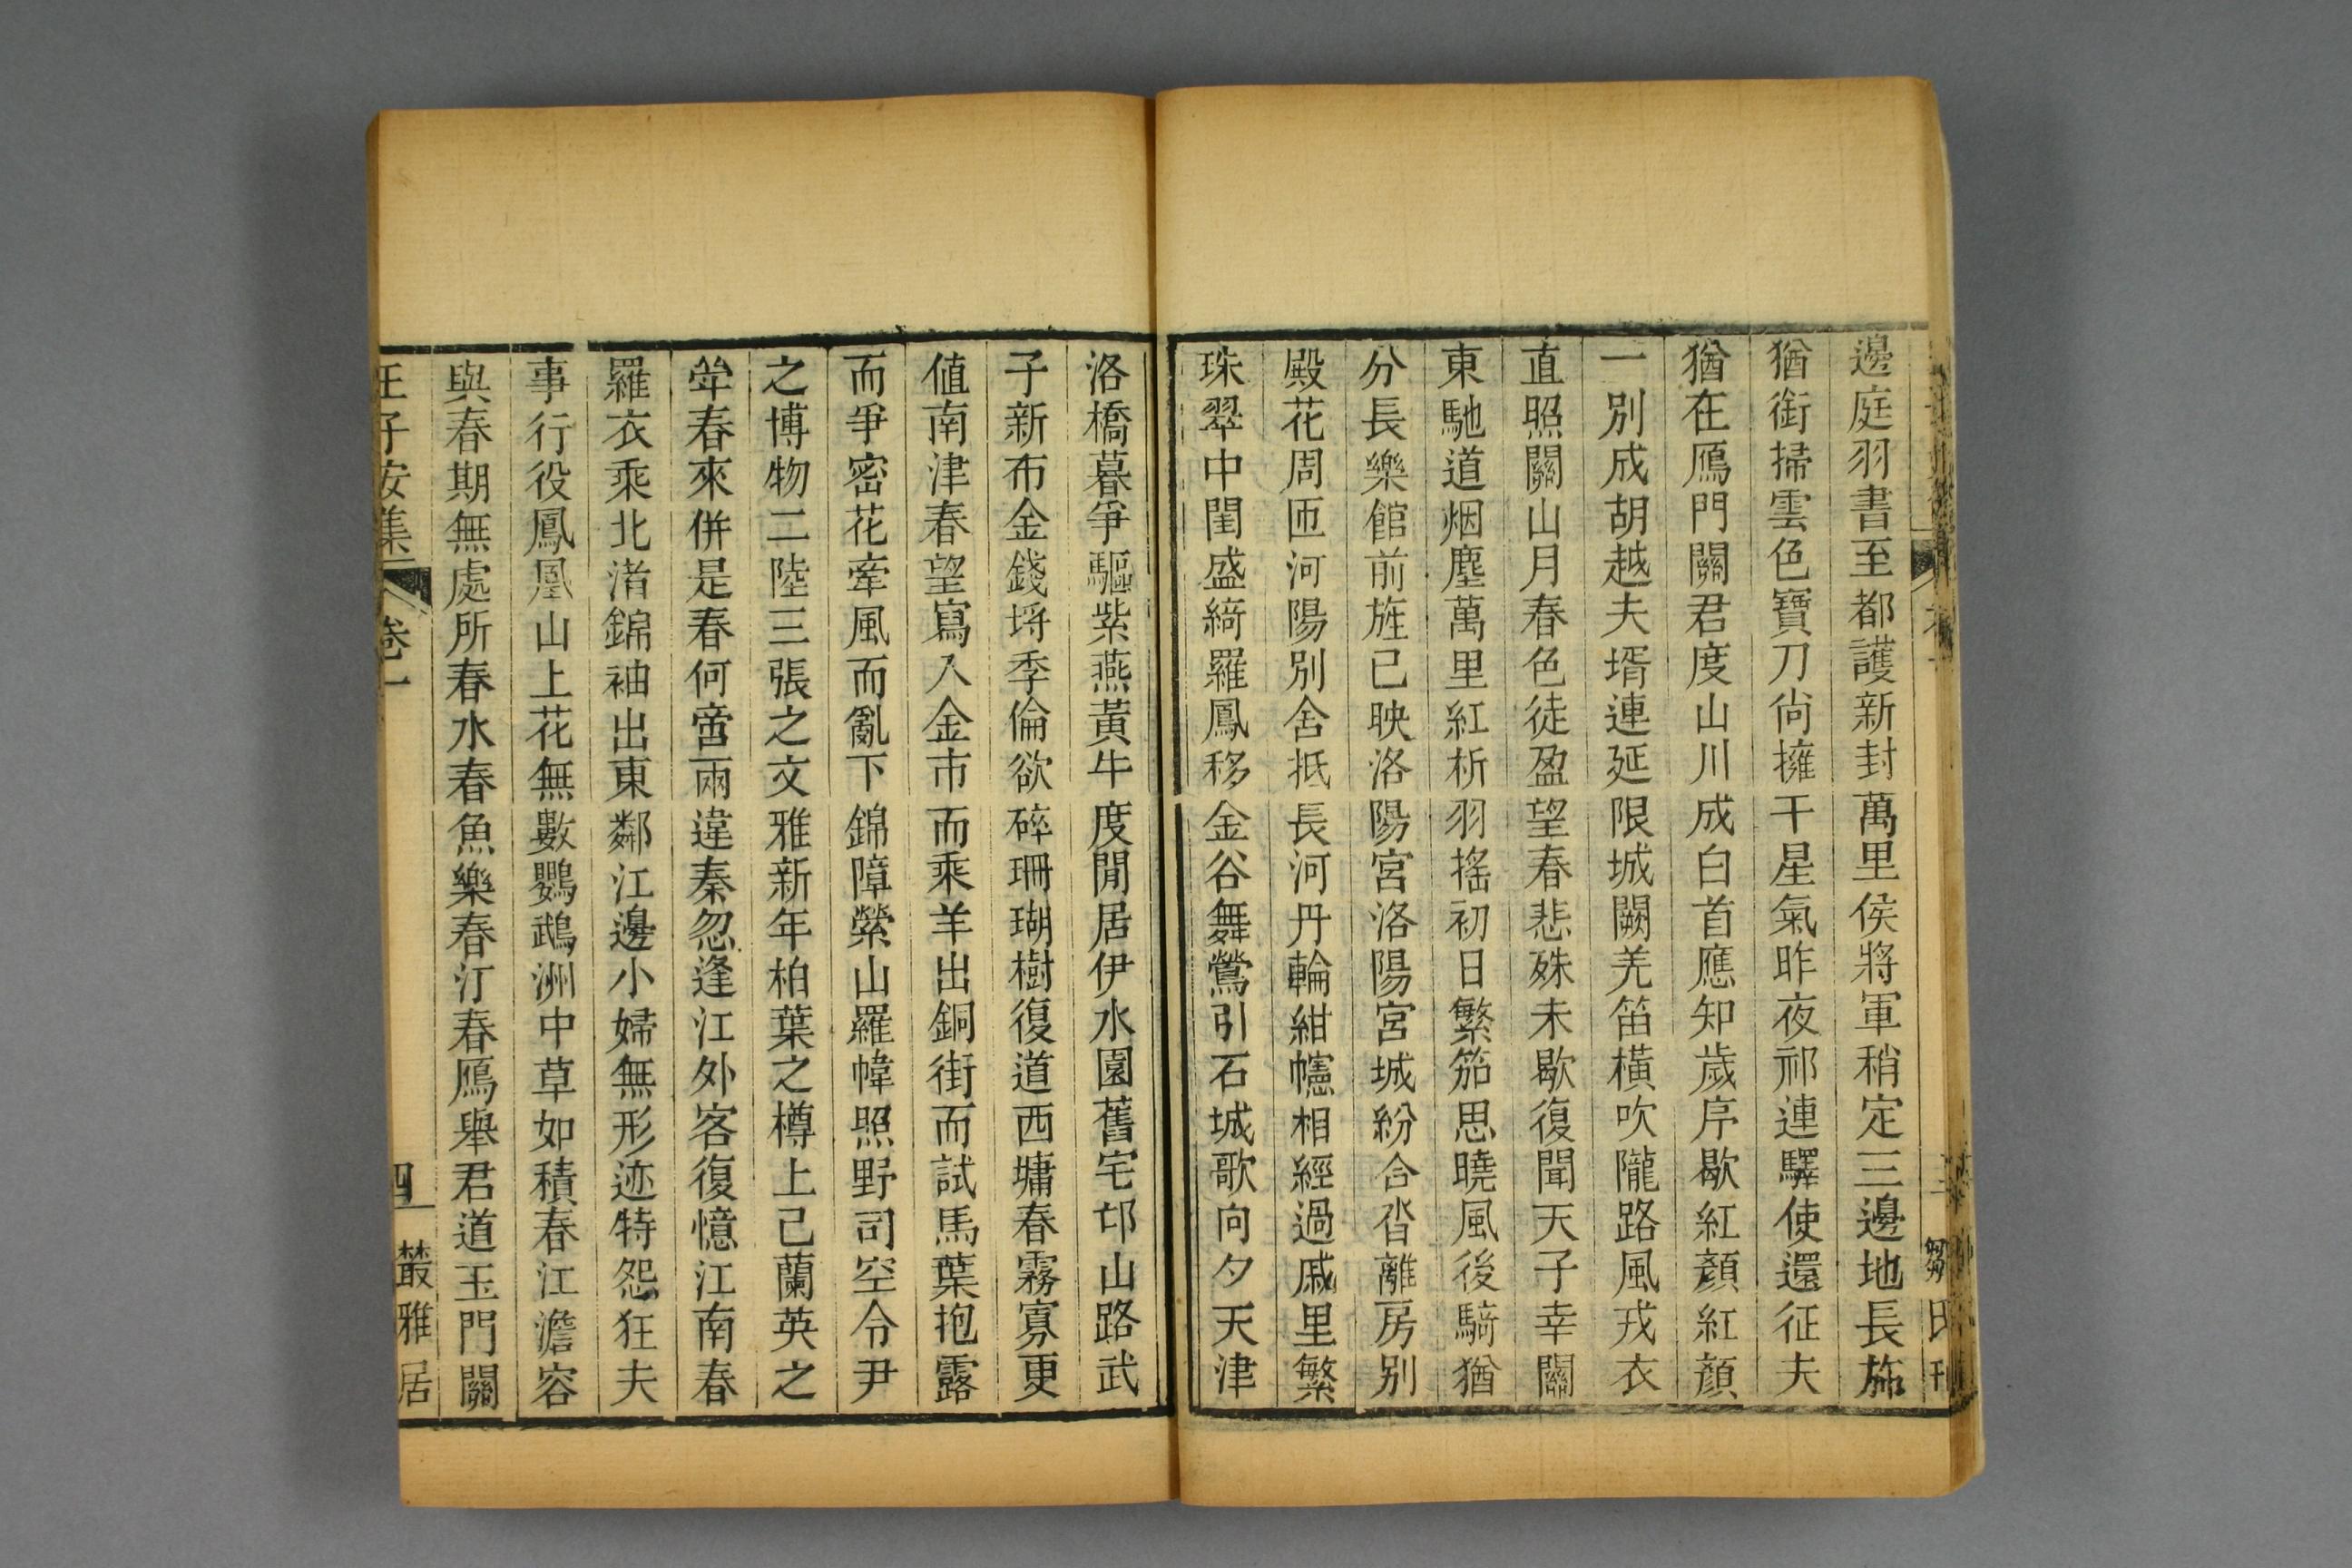 邊庭羽書至都護新封萬里侯將軍稍定三邊地長旆
猶銜掃雲色寶刀尙擁干星氣昨夜祁連驛使還征夫
猶在鴈門關君度山川成白首應知歲序歇紅顏紅顏
一別成胡越夫壻連延限城闕羌笛橫吹隴路風戎衣
直照關山月春色徒盈望春悲殊未歇復聞天子幸關
東馳道烟塵萬里紅析羽搖初日繁笳思曉風後騎猶
分長樂館前旌已映洛陽宮洛陽宮城紛合沓離房別
殿花周匝河陽別舍抵長河丹輪紺幰相經過戚里繁
珠翠中閨盛綺羅鳳移金谷舞鶯引石城歌向夕天津
洛橋暮爭驅紫燕黃牛度閒居伊水園舊宅邙山路武
子新布金錢埒季倫欲碎珊瑚樹復道西墉春霧寡更
値南津春望寫入金市而乘羊出銅街而試馬葉抱露
而爭密花牽風而亂下錦障縈山羅幃照野司空令尹
之博物二陸三張之文雅新年柏葉之樽上己蘭英之
斝春來併是春何啻兩違秦忽逢江外客復憶江南春
羅衣乘北渚錦袖出東鄰江邊小婦無形迹特怨狂夫
事行役鳳凰山上花無數鸚鵡洲中草如積春江澹容
與春期無處所春水春魚樂春汀春鴈舉君道玉門關
王子安集 卷一 四 叢雅居